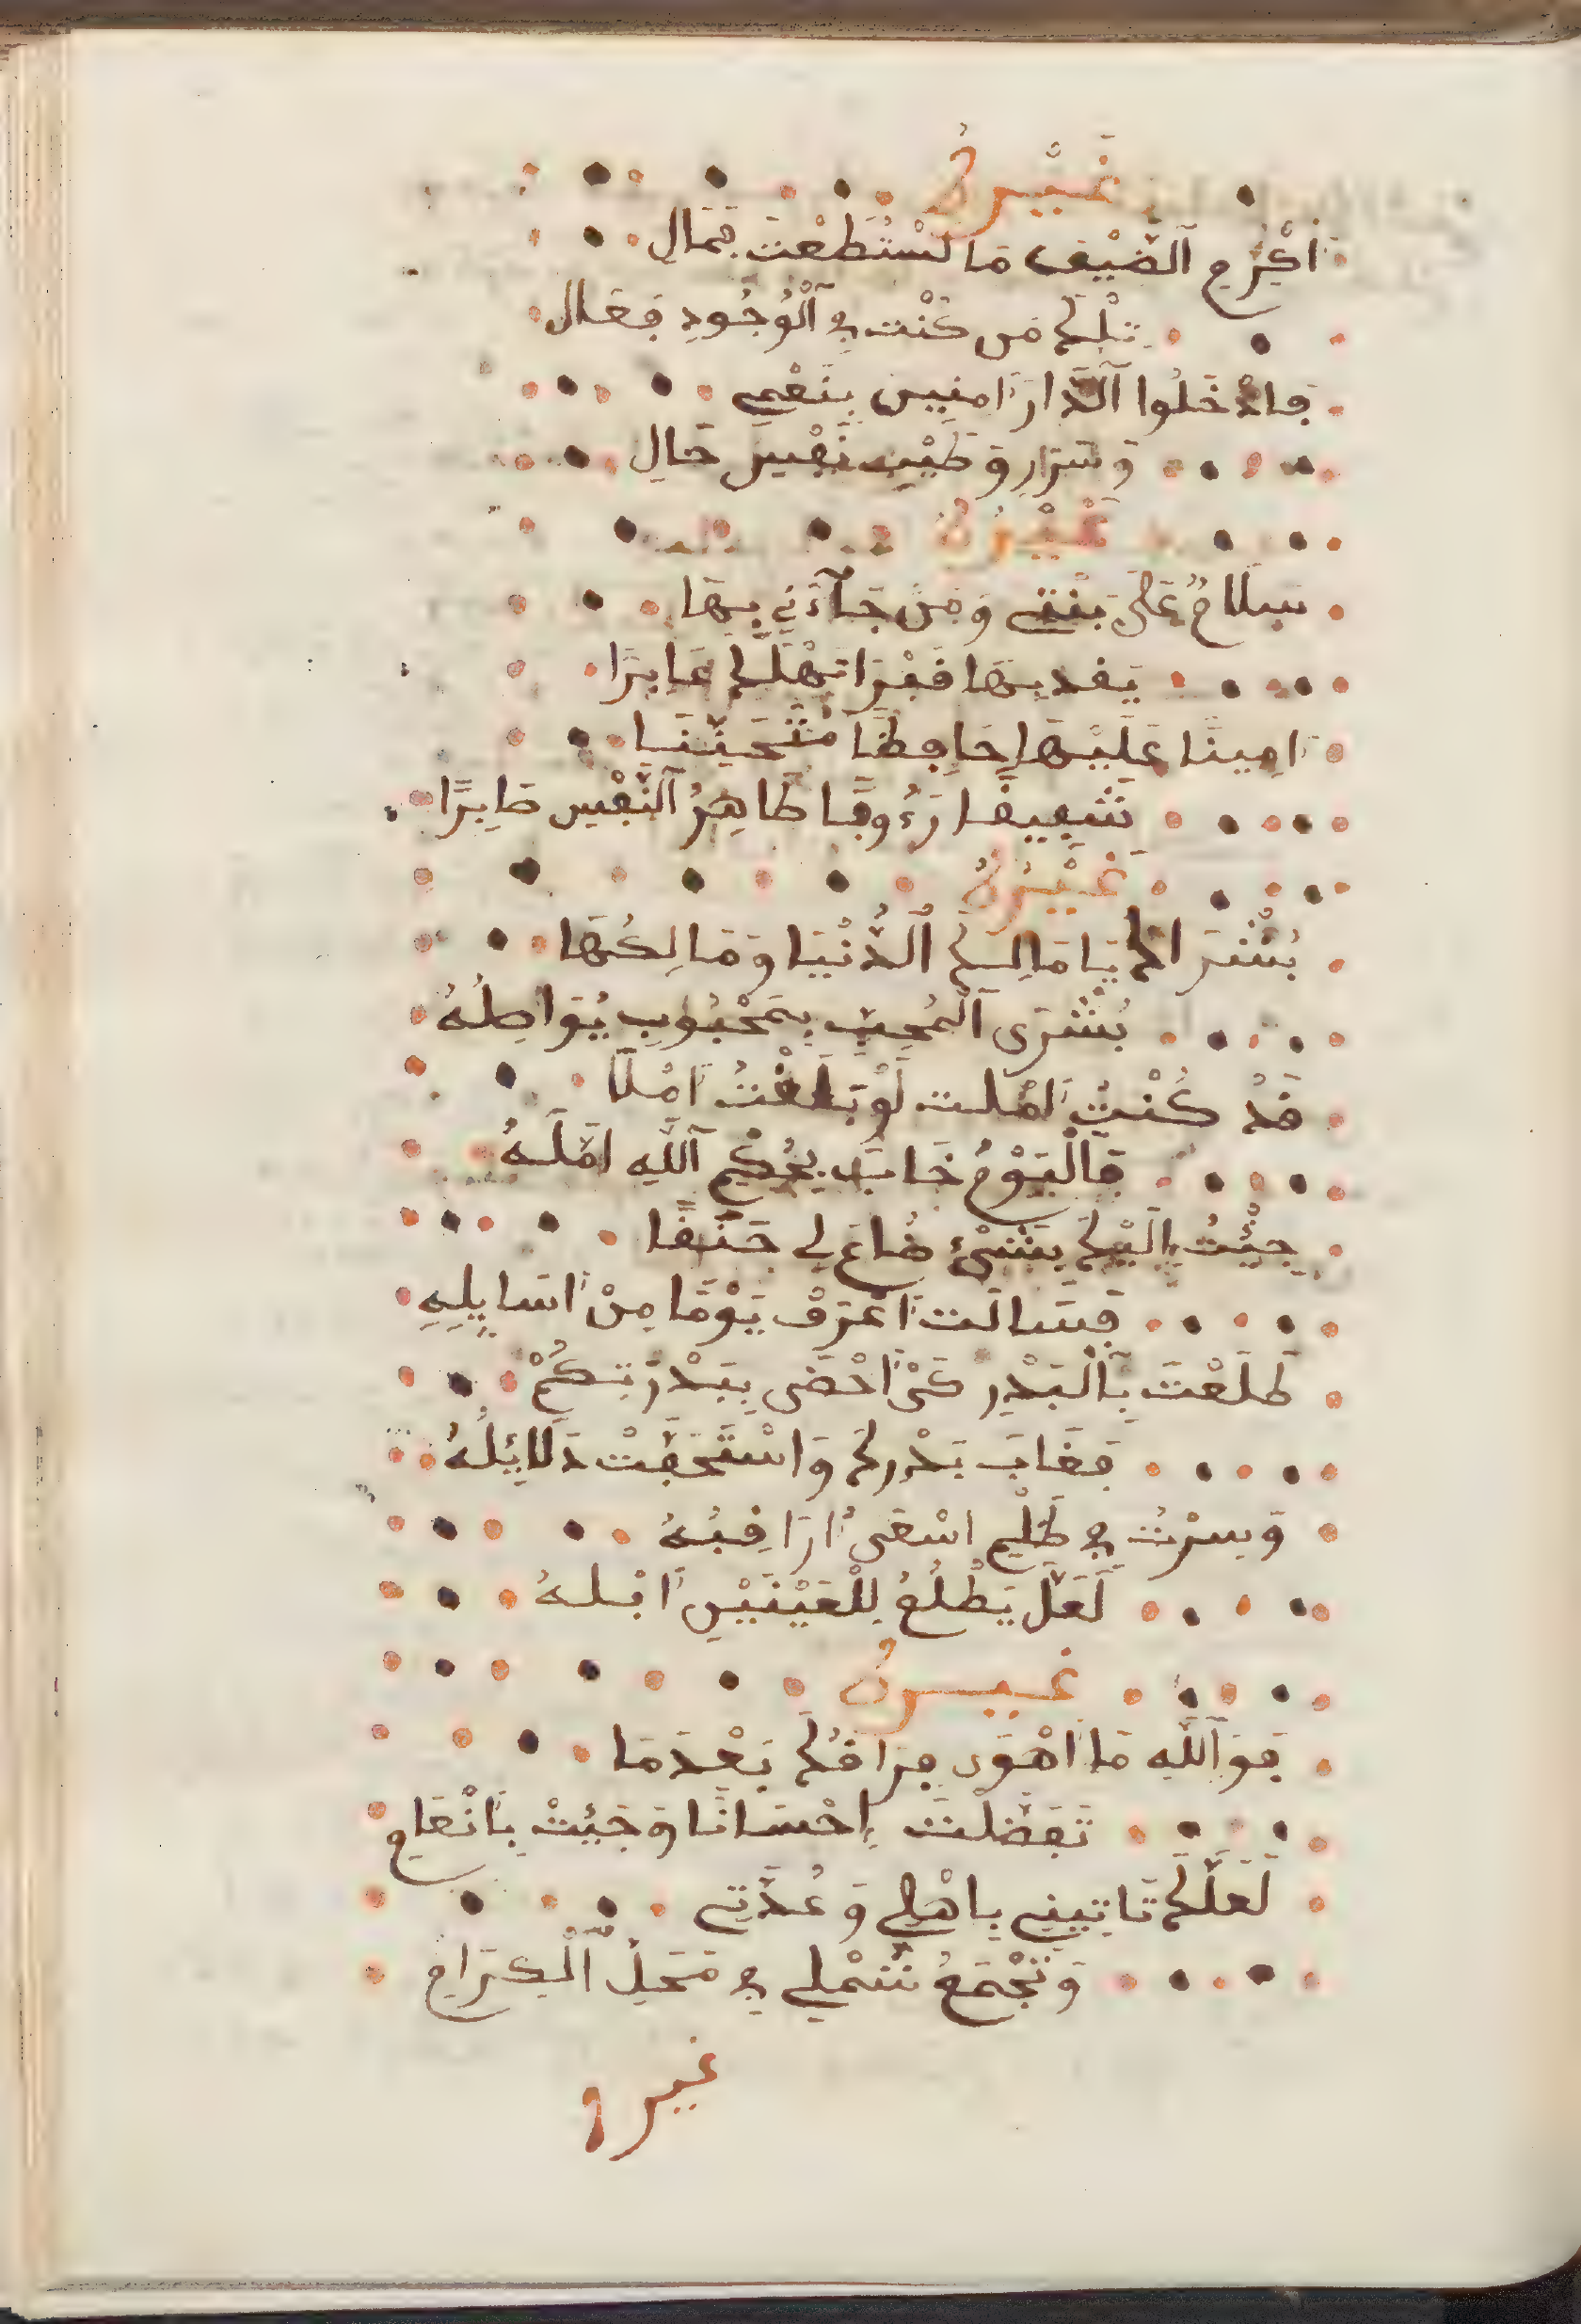 غَيْرُهُ
اَكْرِمِ اَلضَّيْفَ مَا لسْتَطَعْتَ بِمَالِ
تلْكَ مَن كُنْت فِي اَلْوُجُودِ فِعَال
فَادْخَلُوا اَلدَّارَ اَمِنِين بِنَعْمِي
وَسَرَارِ وَطَيْبِ نَفْسٍ حَالِ
غَيْرُهُ
سَلَامٌ عَلَى بَنْتِي وَمَنْ جَآءَنِي بِهَا
يَفديهَا فَبْرَا تهْلَكَ عَابِرًا
اَمِينًا عَلَيْهَا حَافِظًا مُتَحَنِّنَا
شَفِيفًا رَءُوفًا طَاهِرُ اَلنَّفْسِ صَابِرًا
غَيْرُهُ
بُشْرَاكَ يَا مَالِكَ اَلدُّنْيَا وَمَالِكُهَا
بُشْرَى اَلْمُحِبِّ بِمَحْبُوبِ يُوَاصِلُهُ
قَدْ كُنْتُ اَمَّلت لَوْ بَلَغْتُ اَمْلًا
فَالْيَوْمُ خَابَ بِحُكْمِ اَللهِ اَمَّلَهُ
جِيْتُ إِلَيْكَ بِشَيْءٍ ضَاعَ لِي جَنَفًا
فِسَالَت اَعْرَفْ يَوْمًا مِنْ اَسَايِلِهِ
طَلَعْتَ بِالْبَدْرِ كَيْ اَحْضَى بِبَدْرَتِكُمْ
فَغَابَ بَدْركَ وَاسْتَخْفَتْ دَلَايِلُهُ
وَسِرْتُ فِي ظُلْمِ اسْعَى اُرَاقِبُهُ
لَعَلَّ يَطْلُعُ لِلْعَيْنَيْنِ اَبْلهُ
غيرهُ
فَوَاَللَّهِ مَا اَهْوَى فِرَاقُكَ بَعْدَمَا
تَفَضَّلْتَ إِحْسَانًا وَجَيْتْ بِاَنْعَامِ
لَعَلَّكَ تَاتِينِي بِاَهْلِي وَعُدَّتِي
وَتَجْمَعُ شَمْلِي فِي مَحَلِّ اَلْكِرَامِ
غيره